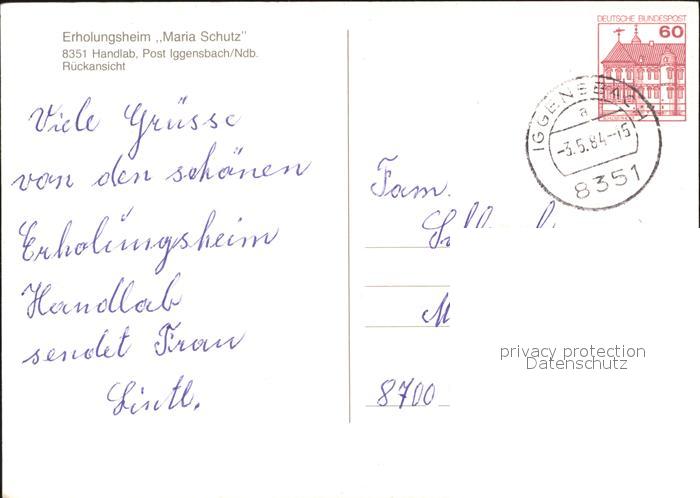 Erholungsheim „Maria Schutz"
8351 Handlab, Post Iggensbach/Ndb.
Rückansicht
DEUTSCHE BUNDESPOST
60
IGGENSBACH
a
-3.5.84-15
8351
Viele Grüsse
von den schönen
Erholüngsheim
Handlab
sendet Frau
Fam.
8700
privacy protection
Datenschutz